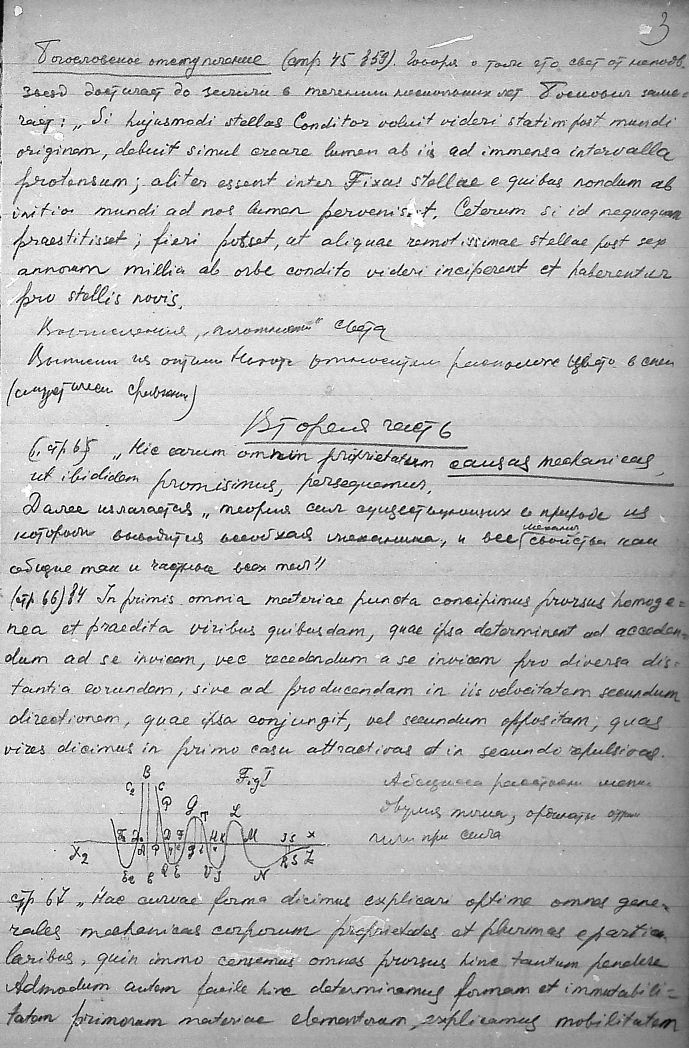 3
Богословское отступление (стр 45 §59). Говоря о том что свет от неподв.
звезд достигает до земли в течении нескольких лет Боскович заме-
чает: „Si hujusmodi stellas Conditor voluit videri statim post mundi
originem, debuit simul creare lumen ab iis ad immensa intervalla
protensum; aliter essent inter Fixas stellae e quibus nondum ab
initio mundi ad nos lumen pervenisset. Ceterum si id nequaquam
praestitisset, fieri posset, ut aliquae remotissimae stellae post sex
annorum millia ab orbe condito videri inciperent et haberentur
pro stellis novis.
Вычисления „плотности" света
Выписки из оптики относительно цвета в
Вторая часть
(стр 65 „Hic earum omnium proprietatum causas mechanicas,
ut ibididem promisimus, persequemur.
Далее излагается „теория сил существующих в природе из
которой выводится всеобщая механика, и все свойства как
механич
общие так и частные всех тел"
(стр 66) 84 In primis omnia materiae puncta concipimus prorsus homoge=
nea et praedita viribus quibusdam, quae ipsa determinent ad acceden-
dum ad se invicem, vec recedendum a se invicem pro diversa dis=
tantia eorundem, sive ad producendam in iis velocitatem secundum
directionem, quae ipsa conjungit, vel secundum oppositam, quas
vires dicimus in primo casu attractivas et in secundo repulsivas.
Fig I
Абсцисса расстоян. между
двумя точками, ординаты
или при сила
B
C
P
D
F
G
T
L
M
N
X
стр 67 „Hac curvae forma dicimus explicari optime omnes gene-
rales mechanicas corporum proprietates et plurimas e particu
laribus, quin immo censemus omnes prorsus hinc tantum pendere
Admodum autem facile hinc determinamus formam et immutabili=
tatem primorum materiae elementorum, explicamus mobilitatem